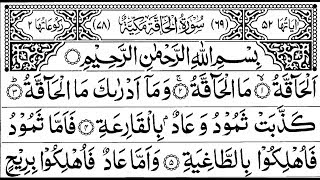 اٰیَاتُهَا ۵۲ (۶۹) سُوْرَةُ الْحَآقَّةِ مَكِّيَّةٌ (۷۸) رُكُوْعَاتُهَا ۲
بِسْمِ اللّٰهِ الرَّحْمٰنِ الرَّحِيْمِ
اَلْحَآقَّةُ ۱ مَا الْحَآقَّةُ ۲ وَمَاۤ اَدْرٰىكَ مَا الْحَآقَّةُ ۳
كَذَّبَتْ ثَمُوْدُ وَعَادٌۢ بِالْقَارِعَةِ ۴ فَاَمَّا ثَمُوْدُ
فَاُهْلِكُوْا بِالطَّاغِيَةِ ۵ وَاَمَّا عَادٌ فَاُهْلِكُوْا بِرِيْحٍ